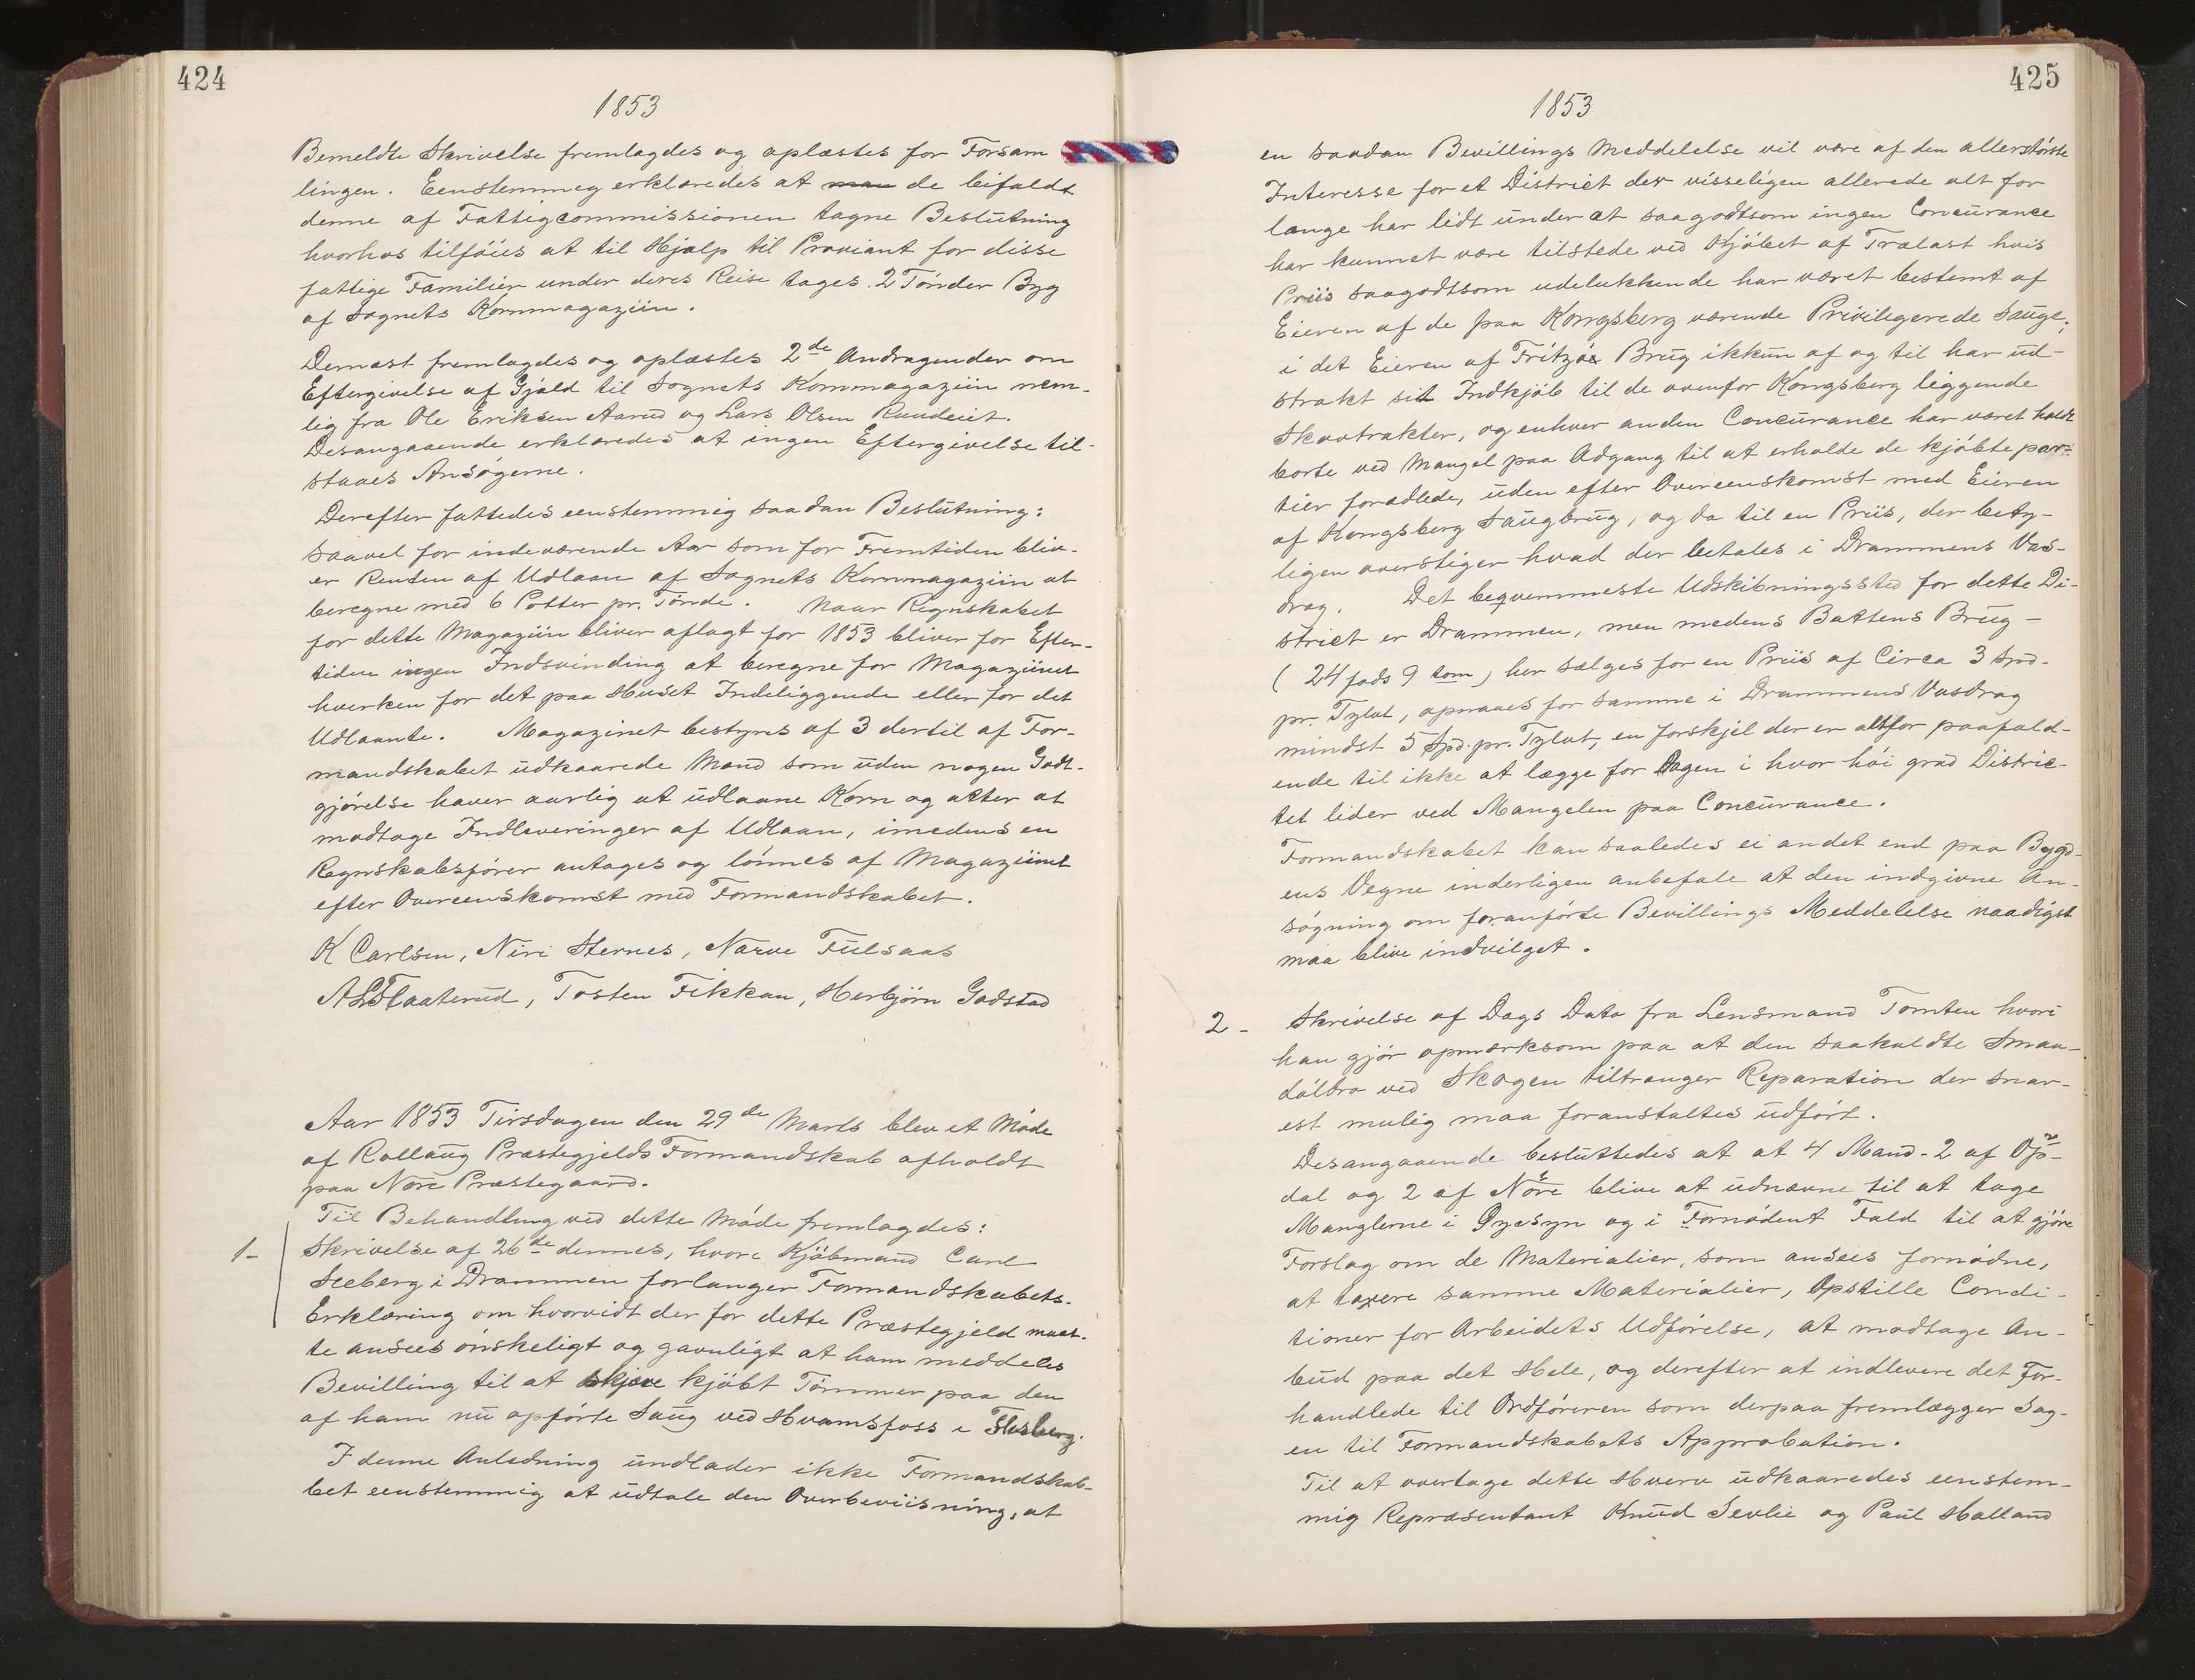 424
1853
Bemeldte Skrivelse fremlagdes og oplæstes for Forsam
lingen. Eenstemmig erklæredes at man de bifaldt
denne af Fattigcommissionen tagne Beslutning
hvorhos tilföies at til Hjælp til Proviant for disse
fattige Familier under deres Reise tages 2 Tönder Byg
af Sognets Kornmagaziin.
Dernæst fremlagdes og oplæstes 2de Andragender om
Eftergivelse af Gjæld til Sognets Kornmagaziin nem-
lig fra Ole Eriksen Aarud og Lars Olsen Ruudeiet.
Desangaaende erklæredes at ingen Eftergivelse til-
staaes Ansögerne.
Derefter fattedes eenstemmig saadan Beslutning:
Saavel for indeværende Aar som for Fremtiden bliv-
er Renten af Udlaan af Sognets Kornmagaziin at
beregne med 6 Potter pr. Tönde. Naar Regnskabet
for dette Magaziin bliver aflagt for 1853 bliver for Efter-
tiden ingen Indsvinding at beregne for Magaziinet
hverken for det paa Huset Indeliggende eller for det
Udlaante. Magazinet bestyres af 3 dertil af For-
mandskabet udkaarede Mænd som uden nogen Godt-
gjörelse haver aarlig at udlaane Korn og atter at
modtage Indleveringer af Udlaan, imedens en
Regnskabsförer antages og lönnes af Magaziinet
efter Overeenskomst med Formandskabet.
K Carlsen, Niri Sternes, Narve Fulsaas
A L Flaaterud, Tosten Fikkan, Herbjörn Gadstad
Aar 1853 Tirsdagen den 29de Marts blev et Möde
af Rollaug Præstegjelds Formandskab afholdt
paa Nore Præstegaard.
Til Behandling ved dette Möde fremlagdes:
1- Skrivelse af 26de dennes, hvore Kjöbmand Carl
Seeberg i Drammen forlanger Formandskabets
Erklæring om hvorvidt der for dette Præstegjeld maat-
te ansees önskeligt og gavnligt at ham meddeles
Bevilling til at skjære kjöbt Tömmer paa den
af ham nu opförte Saug ved Hvamsfoss i Flesberg.
I denne Anledning undlader ikke Formandskab-
bet eenstemmig at udtale den Overbeviisning, at
425
1853
en saadan Bevillings Meddelelse vil være af den allerstörste
Interesse for et District der visseligen allerede alt for
længe har lidt under at saagodtsom ingen Concurance
har kunnet være tilstede ved Kjöbet af Trælast hvis
Priis saagodtsom udelukkende har været bestemt af
Eieren af de paa Kongsberg værende Priviligerede Sauge,
i det Eieren af Fritzö Brug ikkun af og til har ud-
strakt sit Indkjöb til de ovenfor Kongsberg liggende
Skovtrakter, og enhver anden Concurance har været holdt
borte ved Mangel paa Adgang til at erholde de kjöbte par-
tier forædlede, uden efter Overeenskomst med Eieren
af Kongsberg Saugbrug, og da til en Priis, der bety-
ligen overstiger hvad der betales i Drammens Vas-
drag. Det beqvemmeste Udskibningssted for dette Di-
strict er Drammen, men medens Battens Brug -
( 24 fods 9 tom ) her sælges for en Priis af Circa 3 Spd.
pr. Tylvt, opnaaes for samme i Drammens Vasdrag
mindst 5 Spd. pr. Tylvt, en forskjel der er altfor paafald-
ende til ikke at lægge for Dagen i hvor höi grad Distric-
tet lider ved Mangelen paa Concurance.
Formandskabet kan saaledes ei andet end paa Bygd-
ens Vegne inderligen anbefale at den indgivne An-
sögning om foranförte Bevillings Meddelelse naadigst
maa blive indvilget.
2- Skrivelse af Dags Dato fra Lensmand Tomten hvori
han gjör opmærksom paa at den saakaldte Smaa-
dölbro ved Skogen tiltrænger Reparation der snar-
est mulig maa foranstaltes udfört.
Desangaaende besluttedes at at 4 Mænd - 2 af Op-
dal og 2 af Nore blive at udnævne til at tage
Manglerne i Öyesyn og i Fornödent Fald til at gjöre
Forslag om de Materialier, som ansees fornödne,
at taxere samme Materialier, Opstille Condi-
tioner for Arbeidets Udförelse, at modtage An-
bud paa det Hele, og derefter at indlevere det For-
handlede til Ordföreren som derpaa fremlægger Sag-
en til Formandskabets Approbation.
Til at overtage dette Hverv udkaaredes eenstem-
mig Repræsentant Knud Sevlie og Paul Halland